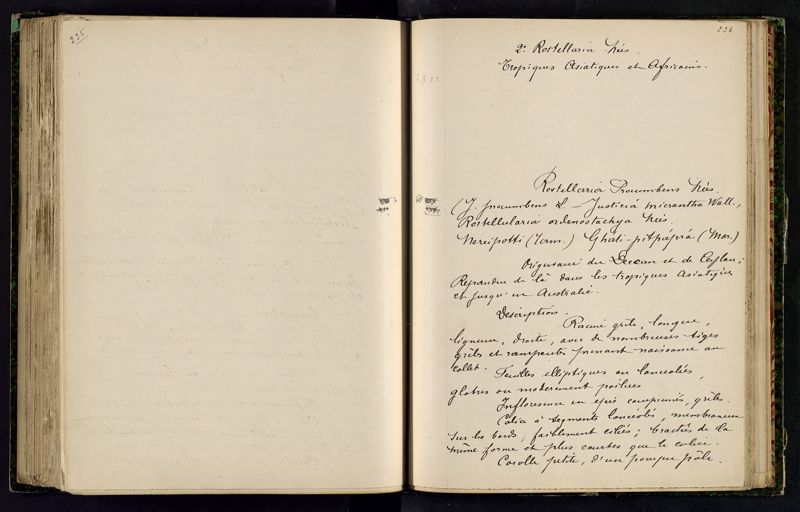 235
236
2º Rostellaria Nées.
Tropiques Asiatiques et Africains.
Rostellaria Procumbens Nées.
(J. procumbens L. – Justicia micrantha Wall.,
Rostellularia Nées.
Nareipotti (Tam.) Ghati-pitpáprá (Mar.)
Originaire du Deccan et de Ceylan;
Repandue de là dans les tropiques Asiatiques
et jusqu'en Australie.
Description.
Racine grêle, longue,
ligneuse, droite, avec de nombreuses tiges
grêles et rampantes prenant naissance au
collet. Feuilles elliptiques ou lanceolées,
glabres ou moderement poilues
Inflorescence en epis comprimés, grêles.
Calice à segments lancéolés, membraneux
sur les bords, faiblement ciliés; bractées de la
même forme et plus courtes que le calice.
Corolle petite, d'un pourpre pâle.